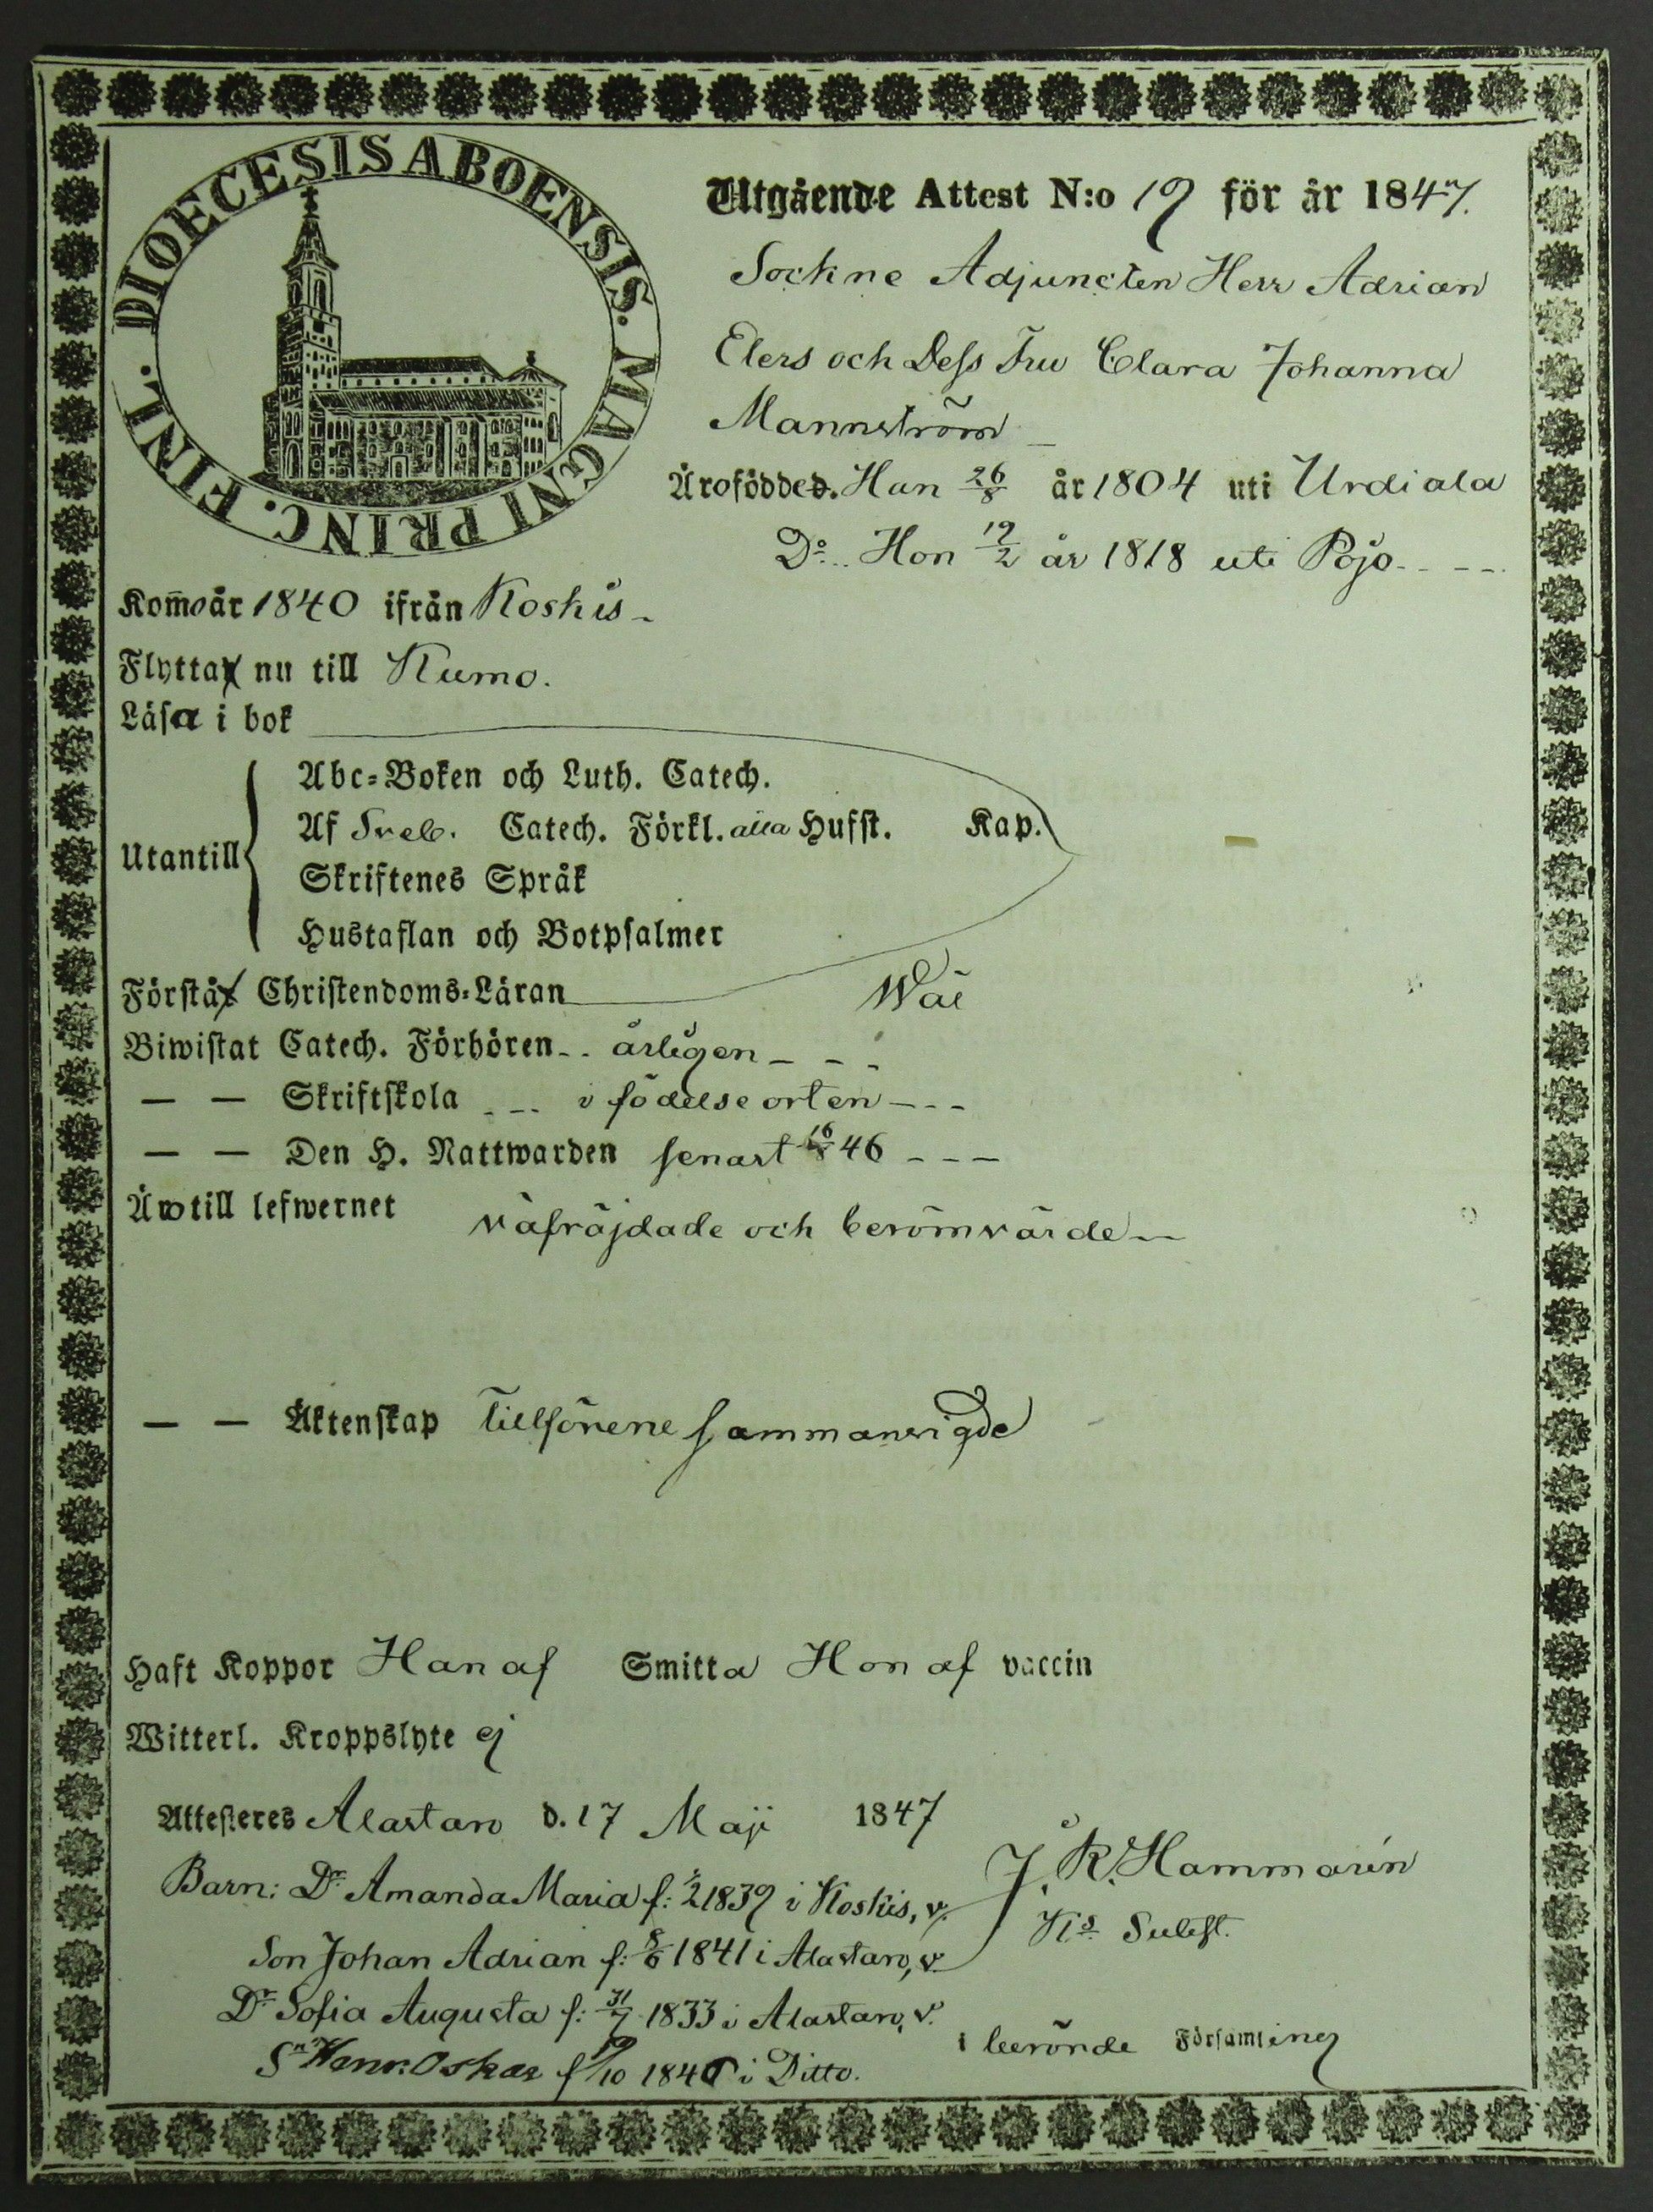 DIOECESIS ABOENSIS. MAGNI PRINC. FINL.
Utgående Attest N:o 19 för år 1847.
Sockne Adjuncten Herr Adrian
Elers och Dess Fru Clara Johanna
Mannström
Äro födde. Han 26/8 år 1804 uti Urdiala
Do.. Hon 19/2 år 1818 uti Pojo
Kom̄o år 1840 ifrån Koskis
Flytta nu till Kumo.
Läsa i bok
Utantill
Abc-Boken och Luth. Catech.
Af Sveb. Catech. Förkl. alla Hufst. Kap.
Skriftenes Språk
Hustaflan och Botpsalmer
Förstå Christendoms-Läran Wäl
Biwistat Catech. Förhören årligen
— — Skriftskola i födelseorten
— — Den H. Nattwarden senast 46
Äro till lefwernet väfräjdade och berömvärde
— — Äktenskap Tillförene sammanvigde
Haft Koppor Han af Smitta Hon af vaccin
Witterl. Kroppslyte ej
Attesteres Alastaro d. 17 Maji 1847
Barn: Dr Amanda Maria f: 1839 i Koskis, v.
J. R. Hammarén
Ks Subst.
Son Johan Adrian f: 8/6 1841 i Alastaro, v.
Dr Sofia Augusta f: 31/7 1833 i Alastaro, v.
i berörde Församling
Sn Henr. Oskar f 19/10 1846 i Ditto.